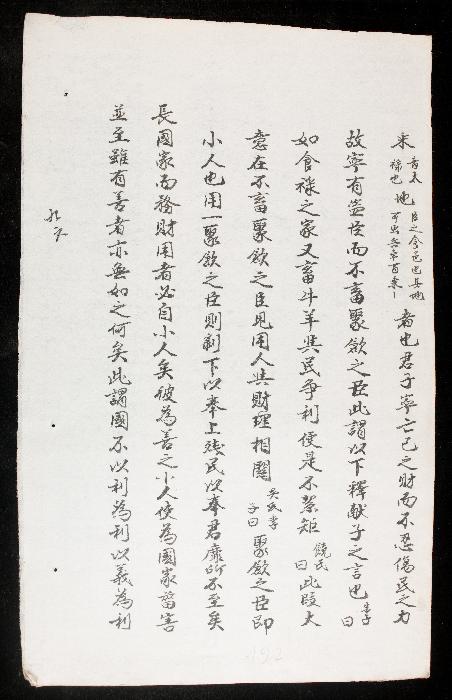 采音太祿也地臣之食邑也其地可出兵車百乘者也君子寧亡己之財而不忍傷民之力
故寧有盜臣而不畜聚歛之臣此謂以下釋獻子之言也朱子曰
如食祿之家又畜牛羊與民爭利便是不絜矩饒氏曰此段大
意在不畜聚歛之臣見用人與財理相關吳氏季子曰聚歛之臣即
小人也用一聚歛之臣則剝下以奉上殘民以奉君靡所不至矣
長國家而務財用者必自小人矣彼為善之小人使為國家菑害
並至雖有善者亦無如之何矣此謂國不以利為利以義為利
192